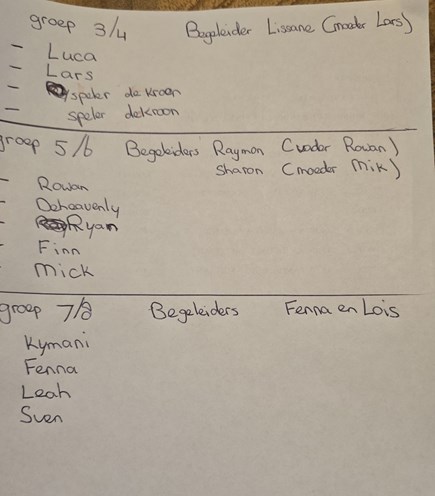 groep 3/4 Begeleider Lissane (moeder Lars)
- Luca
- Lars
- speler de kroon
- speler dekroon
groep 5/6 Begeleiders Raymon (vader Rowan)
Sharon (moeder Mik)
- Rowan
- Deheavenly
- Ryan
- Finn
- Mick
groep 7/8 Begeleiders Fenna en Lois
Kymani
Fenna
Leah
Sven